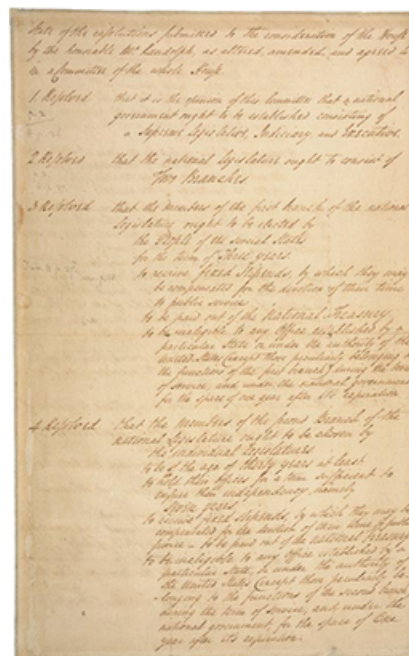 State of the resolutions submitted to the consideration of the House
by the honorable Mr. Randolph, as altered, amended, and agreed to
in a Committee of the whole House.
1. Resolved that it is the opinion of this Committee that a national
government ought to be established consisting of
a Supreme Legislative, Judiciary, and Executive.
2 Resolved that the national Legislature ought to consist of
Two Branches
3 Resolved that the members of the first branch of the national
Legislature ought to be elected by
the People of the several States
for the term of Three years.
to receive fixed stipends, by which they may
be compensated for the devotion of their time
to public service
to be paid out of the National Treasury.
to be ineligible to any Office established by a
particular State or under the authority of the
United States (except those peculiarly belonging to
the functions of the first branch) during the term
of service, and under the national government
for the space of one year after its expiration.
4 Resolved that the members of the second Branch of the
national Legislature ought to be chosen by
the individual Legislatures
to be of the age of thirty years at least.
to hold their offices for a term sufficient to
ensure their independency, namely
seven years.
to receive fixed stipends, by which they may be
compensated for the devotion of their time to public
service - to be paid out of the National Treasury
to be ineligible to any Office established by a
particular State, or under the authority of
the United States (except those peculiarly be-
longing to the functions of the second branch)
during the term of service, and under the
national government, for the space of One
year after its expiration.